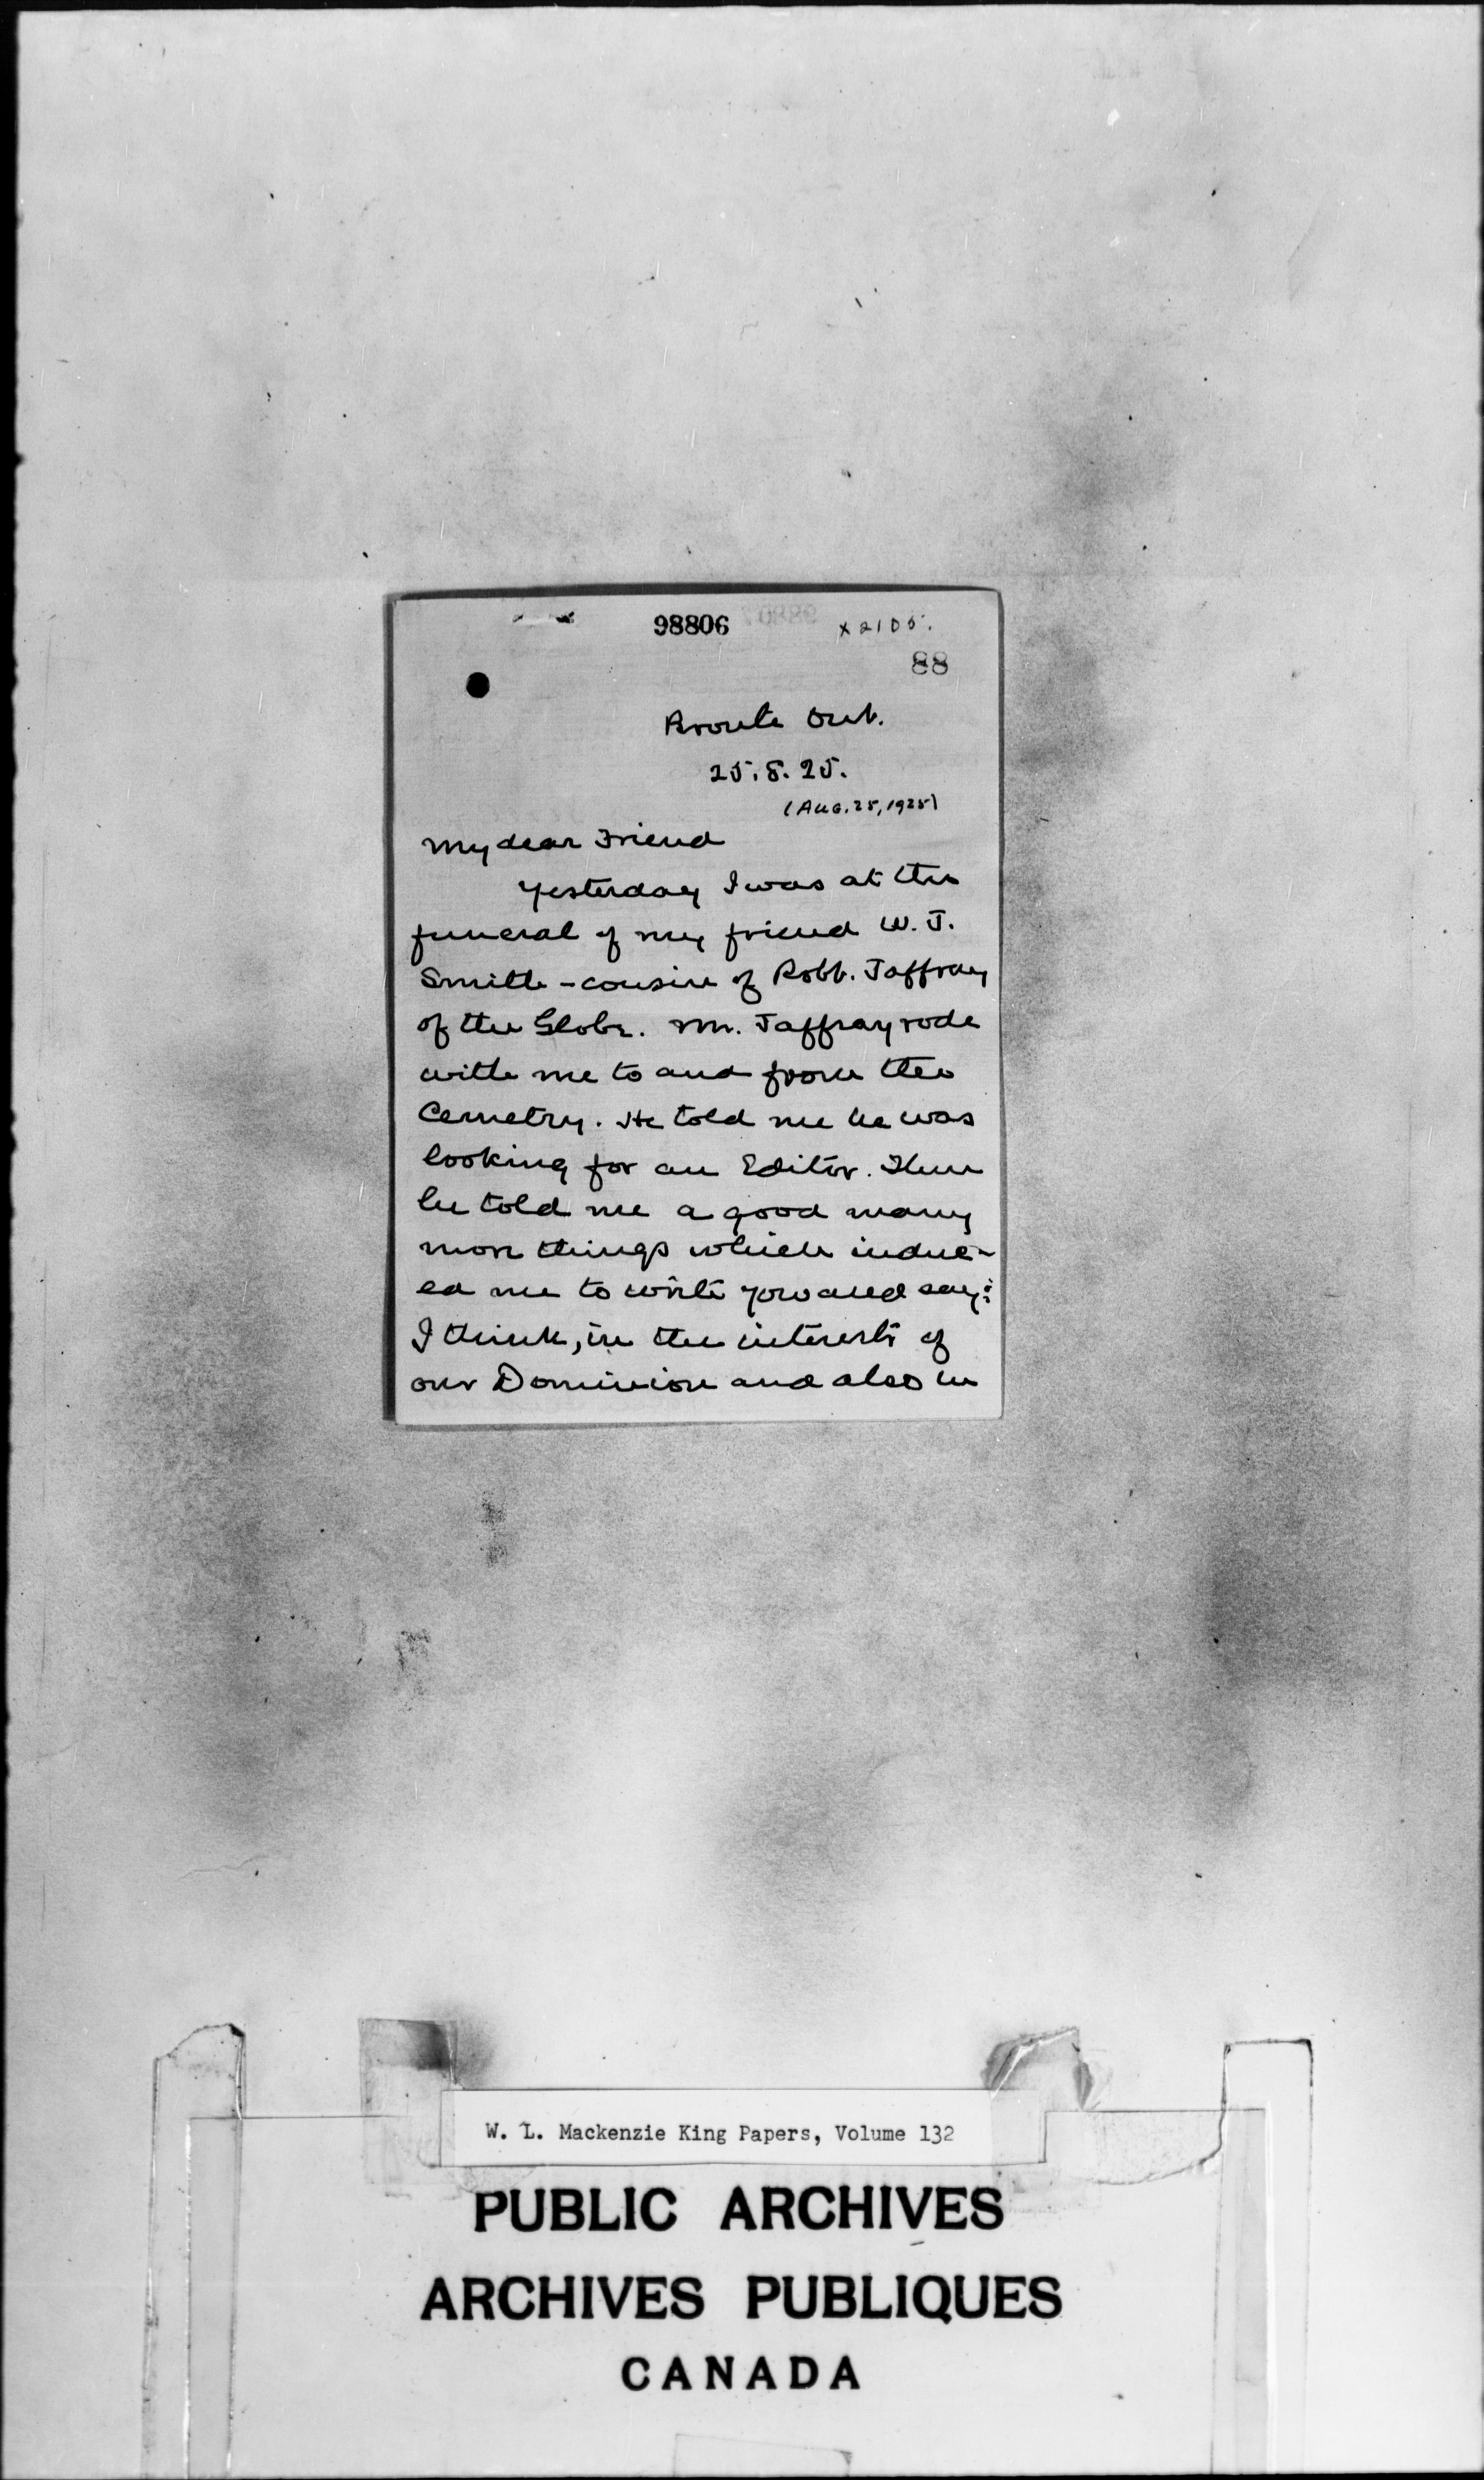 98806
x 2105.
88
Bronte Ont.
25.8.25.
(Aug. 25, 1925)
My dear Friend
Yesterday I was at the
funeral of my friend W. J.
Smith - cousin of Robt. Jaffray
of the Globe. Mr. Jaffray rode
with me to and from the
Cemetry. He told me he was
looking for an Editor. Then
he told me a good many
more things which induc-
ed me to write you and say:
I think, in the interests of
our Dominion and also in
W. L. Mackenzie King Papers, Volume 132
PUBLIC ARCHIVES
ARCHIVES PUBLIQUES
CANADA